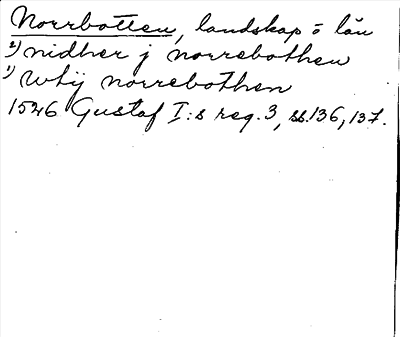 Norrbotten, landskap o län
2) nidher j norrebothen
1) Whij norrebothen
1526 Gustaf I:s reg. 3, ss. 136, 137.